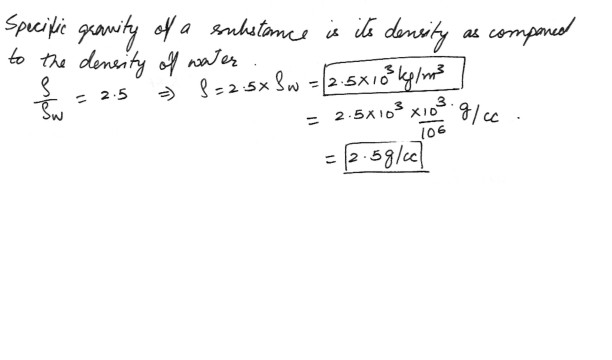 Specific gravity of a substance is its density as compared
to the density of water.
ρ/ρw = 2.5 ⇒ ρ = 2.5 × ρw = 2.5×10³ kg/m³
= 2.5×10³ × 10³/10⁶ g/cc.
= 2.5g/cc